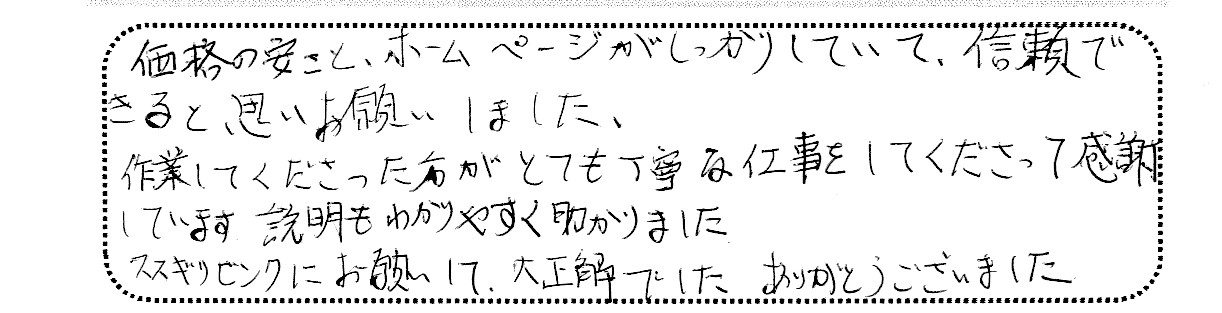 価格の安さと、ホームページがしっかりしていて、信頼で
きると思いお願いしました、
作業してくださった方がとても丁寧な仕事をしてくださって感謝
しています 説明もわかりやすく助かりました
ススギリビングにお願いして、大正解でした ありがとうございました